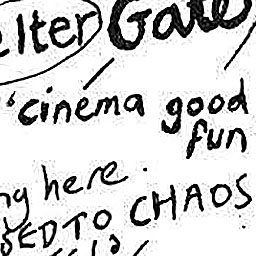 elter Gate
'cinema good
fun
ng here.
SED TO CHAOS